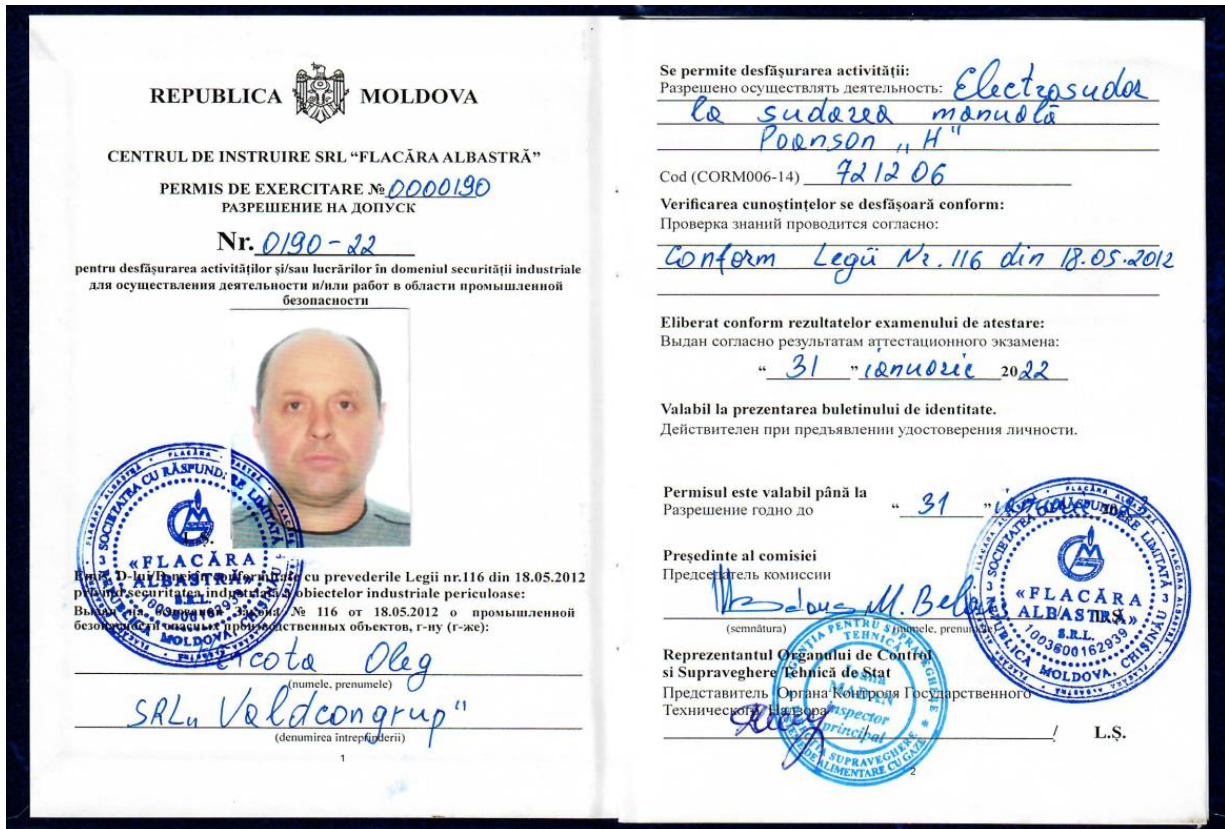 REPUBLICA MOLDOVA
CENTRUL DE INSTRUIRE SRL “FLACĂRA ALBASTRĂ”
PERMIS DE EXERCITARE № 0000190
РАЗРЕШЕНИЕ НА ДОПУСК
Nr. 0190-22
pentru desfășurarea activităților și/sau lucrărilor în domeniul securității industriale
для осуществления деятельности и/или работ в области промышленной
безопасности
SOCIETATEA CU RĂSPUNDERE LIMITATĂ
«FLACĂRA
ALBASTRĂ»
S.R.L.
REPUBLICA MOLDOVA, CHIȘINĂU
cu prevederile Legii nr.116 din 18.05.2012
privind securitatea industrială a obiectelor industriale periculoase:
Выдан на основании Закона № 116 от 18.05.2012 о промышленной
безопасности опасных производственных объектов, г-ну (г-же):
Oleg
(numele, prenumele)
SRL „Valdcongrup"
(denumirea întreprinderii)
1
Se permite desfășurarea activității:
Разрешено осуществлять деятельность: Electrosudor
la sudarea manuală
Poanson „H"
Cod (CORM006-14) 721206
Verificarea cunoștințelor se desfășoară conform:
Проверка знаний проводится согласно:
Conform Legii Nr. 116 din 18.05.2012
Eliberat conform rezultatelor examenului de atestare:
Выдан согласно результатам аттестационного экзамена:
“ 31 ” ianuarie 2022
Valabil la prezentarea buletinului de identitate.
Действителен при предъявлении удостоверения личности.
Permisul este valabil până la
Разрешение годно до “ 31 ”
Președinte al comisiei
Председатель комиссии
M.
(semnătura) (numele, prenumele)
SOCIETATEA CU RĂSPUNDERE LIMITATĂ
«FLACĂRA
ALBASTRĂ»
S.R.L.
1003600162939
REPUBLICA MOLDOVA, CHIȘINĂU
Reprezentantul Organului de Control
si Supraveghere Tehnică de Stat
Представитель Органа Контроля Государственного
Технического Надзора
AGENȚIA PENTRU SUPRAVEGHERE TEHNICĂ
Inspector
principal
/ L.Ș.
2